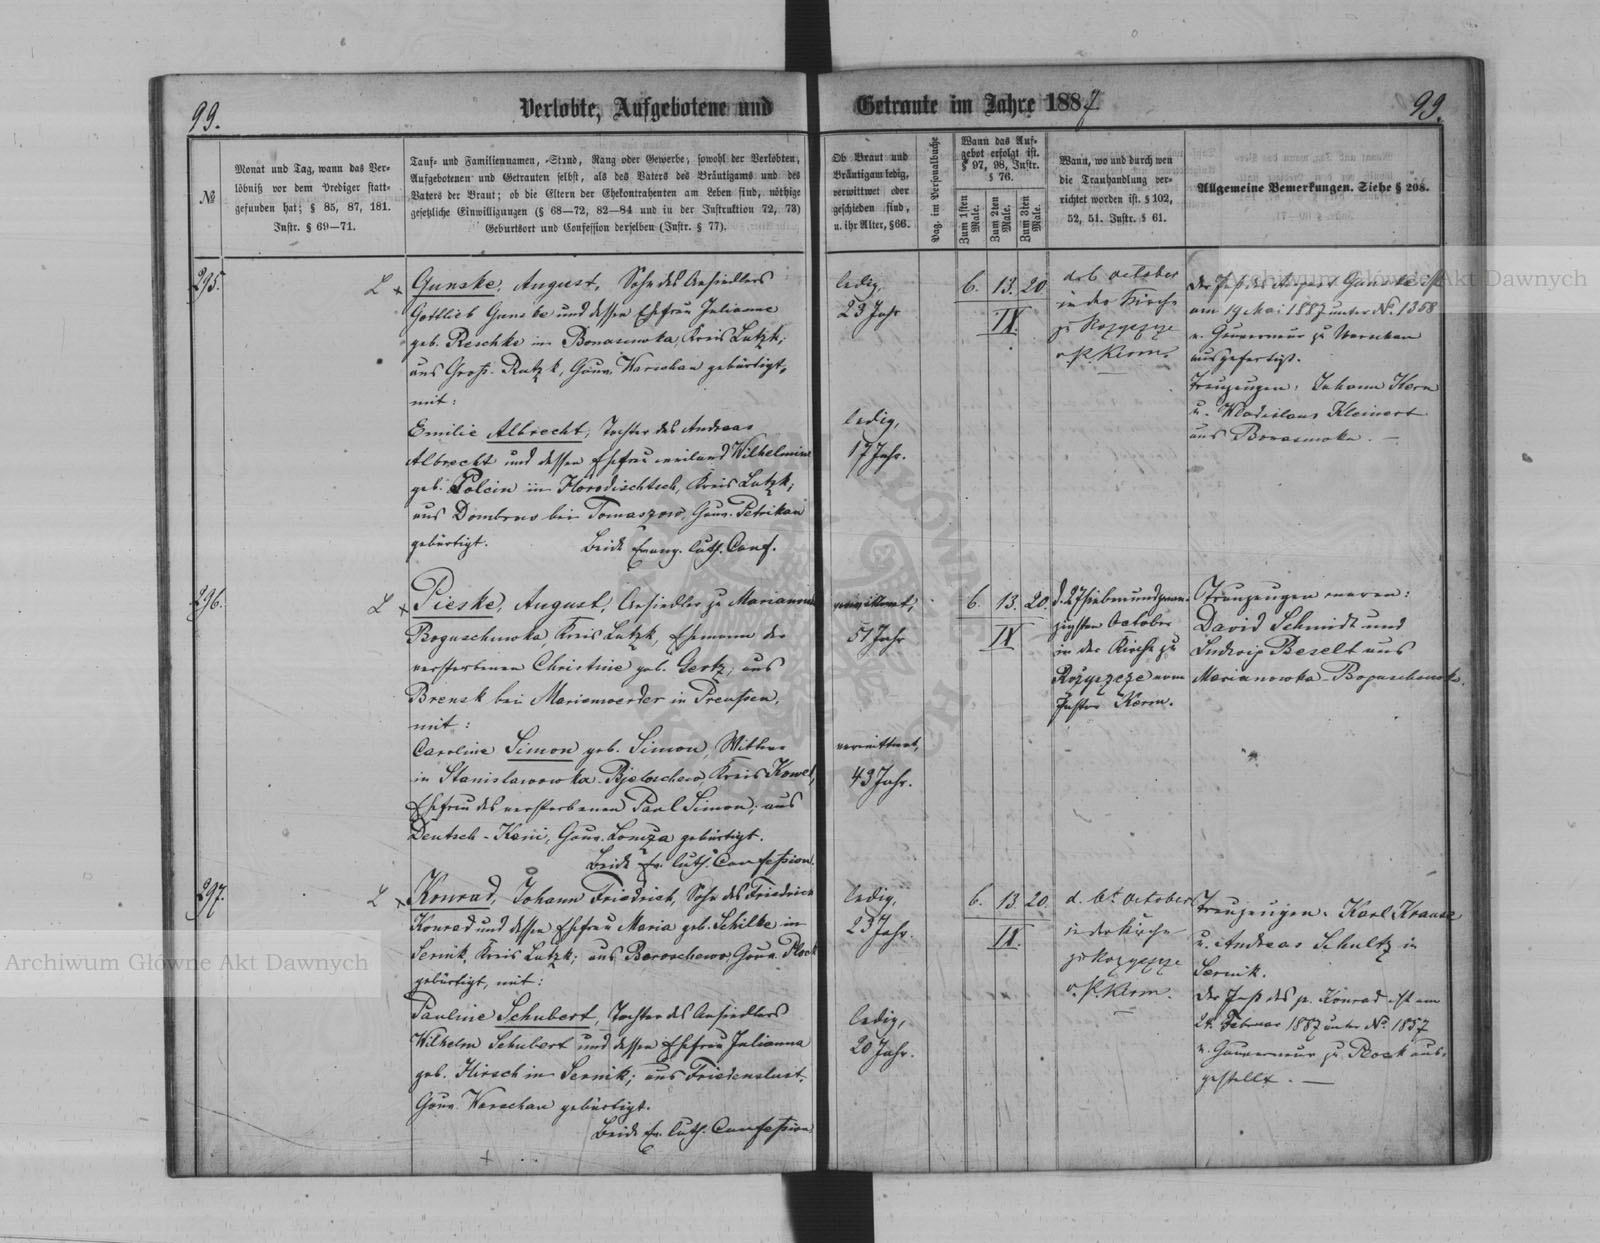 99.
Verlobte, Aufgebotene und
Getraute im Jahre 1887
99.
№
Monat und Tag, wann das Ver-
löbniß vor dem Prediger statt-
gefunden hat; § 85, 87, 181.
Instr. § 69—71.
Tauf- und Familiennamen, Stand, Rang oder Gewerbe, sowohl der Verlobten,
Aufgebotenen und Getrauten selbst, als des Vaters des Bräutigams und des
Vaters der Braut; ob die Eltern der Ehekontrahenten am Leben sind, nöthige
gesetzliche Einwilligungen (§ 68—72, 82—84 und in der Instruktion 72, 73)
Geburtsort und Confession derselben (Instr. § 77).
Ob Braut und
Bräutigam ledig,
verwittwet oder
geschieden sind,
u. ihr Alter, § 66.
Pag. im Personalbuche
Wann das Auf-
gebot erfolgt ist.
§ 97, 98, Instr.
§ 76.
Zum 1sten Male.
Zum 2ten Male.
Zum 3ten Male.
Wann, wo und durch wen
die Trauhandlung ver-
richtet worden ist. § 102,
52, 51. Instr. § 61.
Allgemeine Bemerkungen. Siehe § 208.
295.
L x Gunske, August, Sohn des Ansiedlers
Gottlieb Gunske und dessen Ehefrau Julianne
geb. Reschke in Kreis Lutzk;
aus Groß- Gouv. Warschau gebürtigt,
mit:
Emilie Albrecht, Tochter des Andreas
Albrecht und dessen Ehefrau weiland Wilhelmine
geb. Polein in Horodischtsch, Kreis Lutzk;
aus Dombrow bei Tomaszow, Gouv. Petrikau
gebürtigt. Beide Evang. luth. Conf.
ledig,
23 Jahr
ledig,
17 Jahr.
6. 13. 20.
IX.
d. 6 october
in der Kirche
zu Rozyszcze
v. P. Kerm.
Der Paß des August Gunske ist
am 19 Mai 1887 unter №. 1358
v. Gouverneur zu Warschau
ausgefertigt.
Trauzeugen: Johann
u. Wladislaus Kleinert
aus
296.
L x Pieske, August, Ansiedler zu Marianow
Boguschowka, Kreis Lutzk, Ehemann der
verstorbenen Christine geb. Gertz; aus
Brensk bei Marienwerder in Preußen,
mit:
Caroline Simon geb. Simon, Wittwe
in Stanislawowka- Kreis Kowel,
Ehefrau des verstorbenen Paul Simon; aus
Deutsch- Gouv. Lomza gebürtigt.
Beide Ev. luth. Confession.
verwittwet,
51 Jahr
verwittwet,
43 Jahr.
6. 13. 20.
IX
d. 27 siebenundzwan-
zigsten October
in der Kirche zu
Rozyszcze vom
Pastor Kerm.
Trauzeugen waren:
David Schmidt und
Ludwig Beselt aus
Marianowka-
297.
L x Konrad, Johann Friedrich, Sohn des Friedrich
Konrad und dessen Ehefrau Maria geb. Schilke in
Sernik, Kreis Lutzk; aus Gouv. Plock
gebürtigt, mit:
Pauline Schubert, Tochter des Ansiedlers
Wilhelm Schubert und dessen Ehefrau Julianna
geb. Hirsch in Sernik; aus Friedenslust,
Gouv. Warschau gebürtigt.
Beide Ev. luth. Confession
ledig,
23 Jahr.
ledig,
20 Jahr.
6. 13. 20.
IX.
d. 6t. October
in der Kirche
zu Rozyszcze
v. P. Kerm.
Trauzeugen: Karl Krause
u. Andreas Schultz in
Sernik.
Der Paß des p. Konrad ist am
24. Februar 1887 unter №. 1857
v. Gouverneur zu Plock aus-
gestellt.
Archiwum Główne Akt Dawnych
Archiwum Główne Akt Dawnych